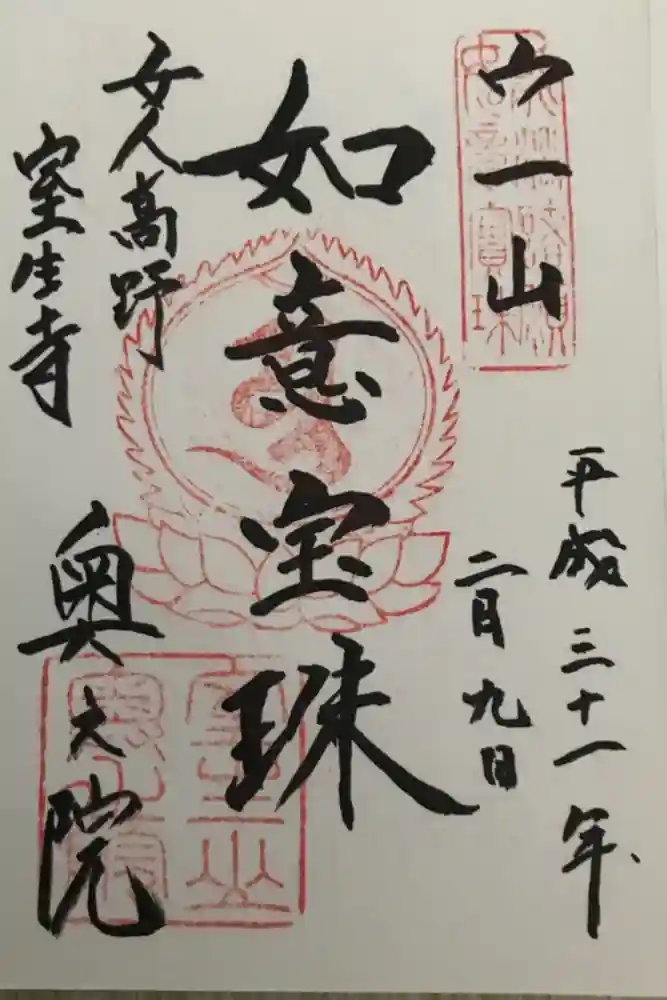 宀一山
平成三十一年
二月九日
如意宝珠
女人高野
室生寺
奥之院